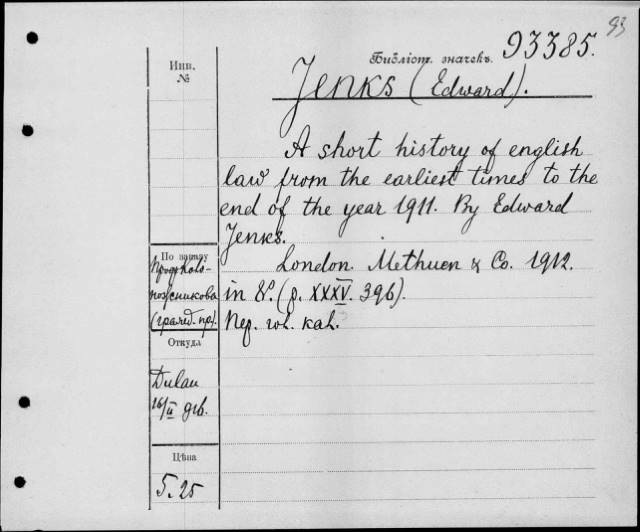 93
Библіот. значекъ 93385.
Инв.
№
Jenks (Edward).
A short history of english
law from the earliest times to the
end of the year 1911. By Edward
Jenks.
London. Methuen & Co. 1912.
in 8º. (p. XXXV. 396).
Пер.
По заказу
Проф.
Откуда
Dulau
16/II
Цѣна
5.25